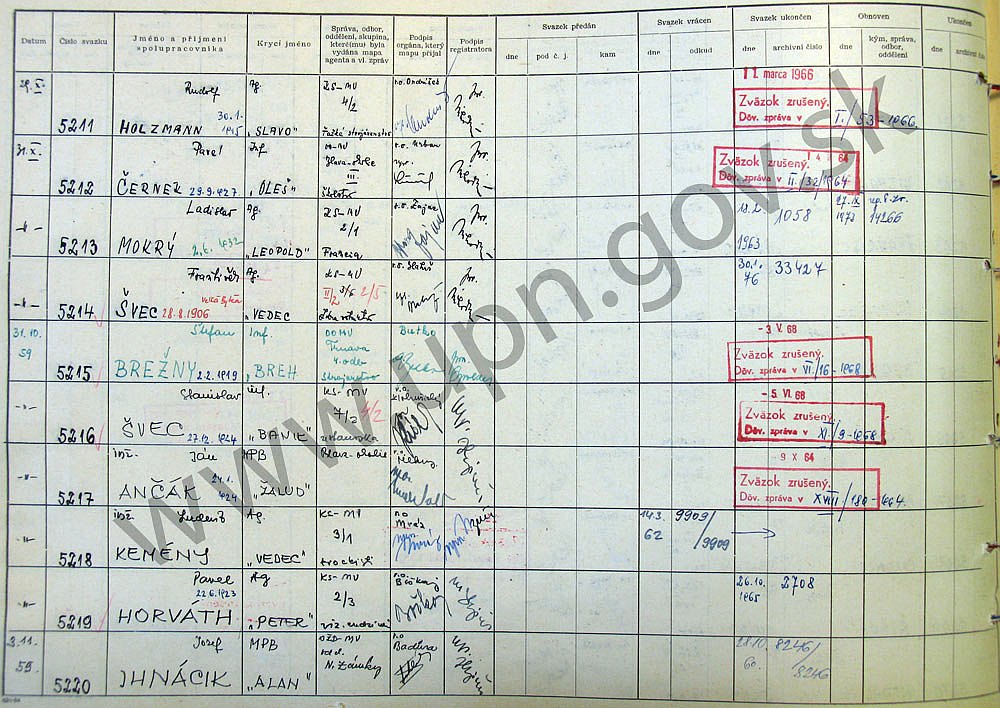 Datum
Číslo svazku
Jméno a příjmení
spolupracovníka
Krycí jméno
Správa, odbor,
oddělení, skupina,
které(mu) byla
vydána mapa
agenta a vl. zpráv
Podpis
orgána, který
mapu přijal
Podpis
registrátora
Svazek předán
dne
pod č. j.
kam
Svazek vrácen
dne
odkud
Svazek ukončen
dne
archivní číslo
Obnoven
dne
kým, správa,
odbor,
oddělení
Ukončen
dne
archivní číslo
29. X.
5211
Rudolf
30.1.
1915
HOLZMANN
Ag.
"SLAVO"
ZS-MV
4/2
11 marca 1966
Zväzok zrušený.
Dôv. zpráva v I./53-1966.
31. X.
5212
Pavel
ČERNEK 29.9.1927
Inf.
"OLEŠ"
III.
1 4 64
Zväzok zrušený.
Dôv. zpráva v II./32/1964
-"-
5213
Ladislav
MOKRÝ 2.6.1932
Ag.
"LEOPOLD"
ZS-MV
2/1
Francia
1058
1963
27. IX
1973
14266
-"-
5214
František
ŠVEC 28.8.1906
Ag.
"VEDEC
KS-MV
2/5
30.1.
76
33427
31.10.
59
5215
Štefan
BREŽNY 2.2.1919
Inf.
"BREH
OOMV
Trnava
Butko
- 3 V. 68
Zväzok zrušený.
Dôv. zpráva v VI./16-1968
-"-
5216
Stanislav
ŠVEC 27.12.1924
inf.
"BANÍK"
KS-MV
7/2
4/2
- 5. VI 68
Zväzok zrušený.
Dôv. zpráva v XI./9-1968
-"-
5217
inž. Ján
ANČÁK 24.1.
1924
MPB
"ŽALUD"
Blava-okolie
- 9 X 64
Zväzok zrušený.
Dôv. zpráva v XVIII/180-1964.
-"-
5218
inž. Ľudevít
KEMÉNY
Ag.
"VEDEC"
KS-MV
3/1
trockisti
14.3.
62
9909/
9909
-"-
5219
Pavel
22.6.1923
HORVÁTH
Ag
"PETER"
KS-MV
2/3
26.10.
1965
2708
3.11.
59.
5220
Jozef
IHNÁCIK
MPB
"ALAN"
N. Zámky
Badura
28.10.
60.
8246/
8246
www.upn.gov.sk